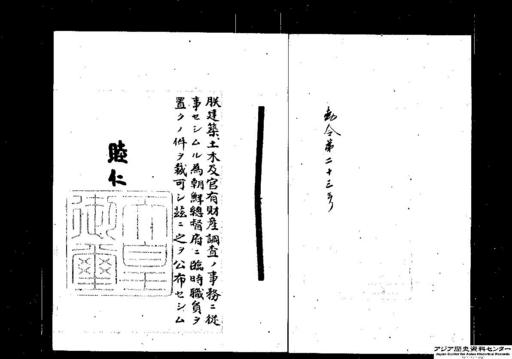 勅令第二十三号
朕建築、土木及官有財産調査ノ事務ニ従
事セシムル為朝鮮總督府ニ臨時職員ヲ
置クノ件ヲ裁可シ茲ニ之ヲ公布セシム
睦仁
天皇
御璽
アジア歴史資料センター
Japan Center for Asian Historical Records